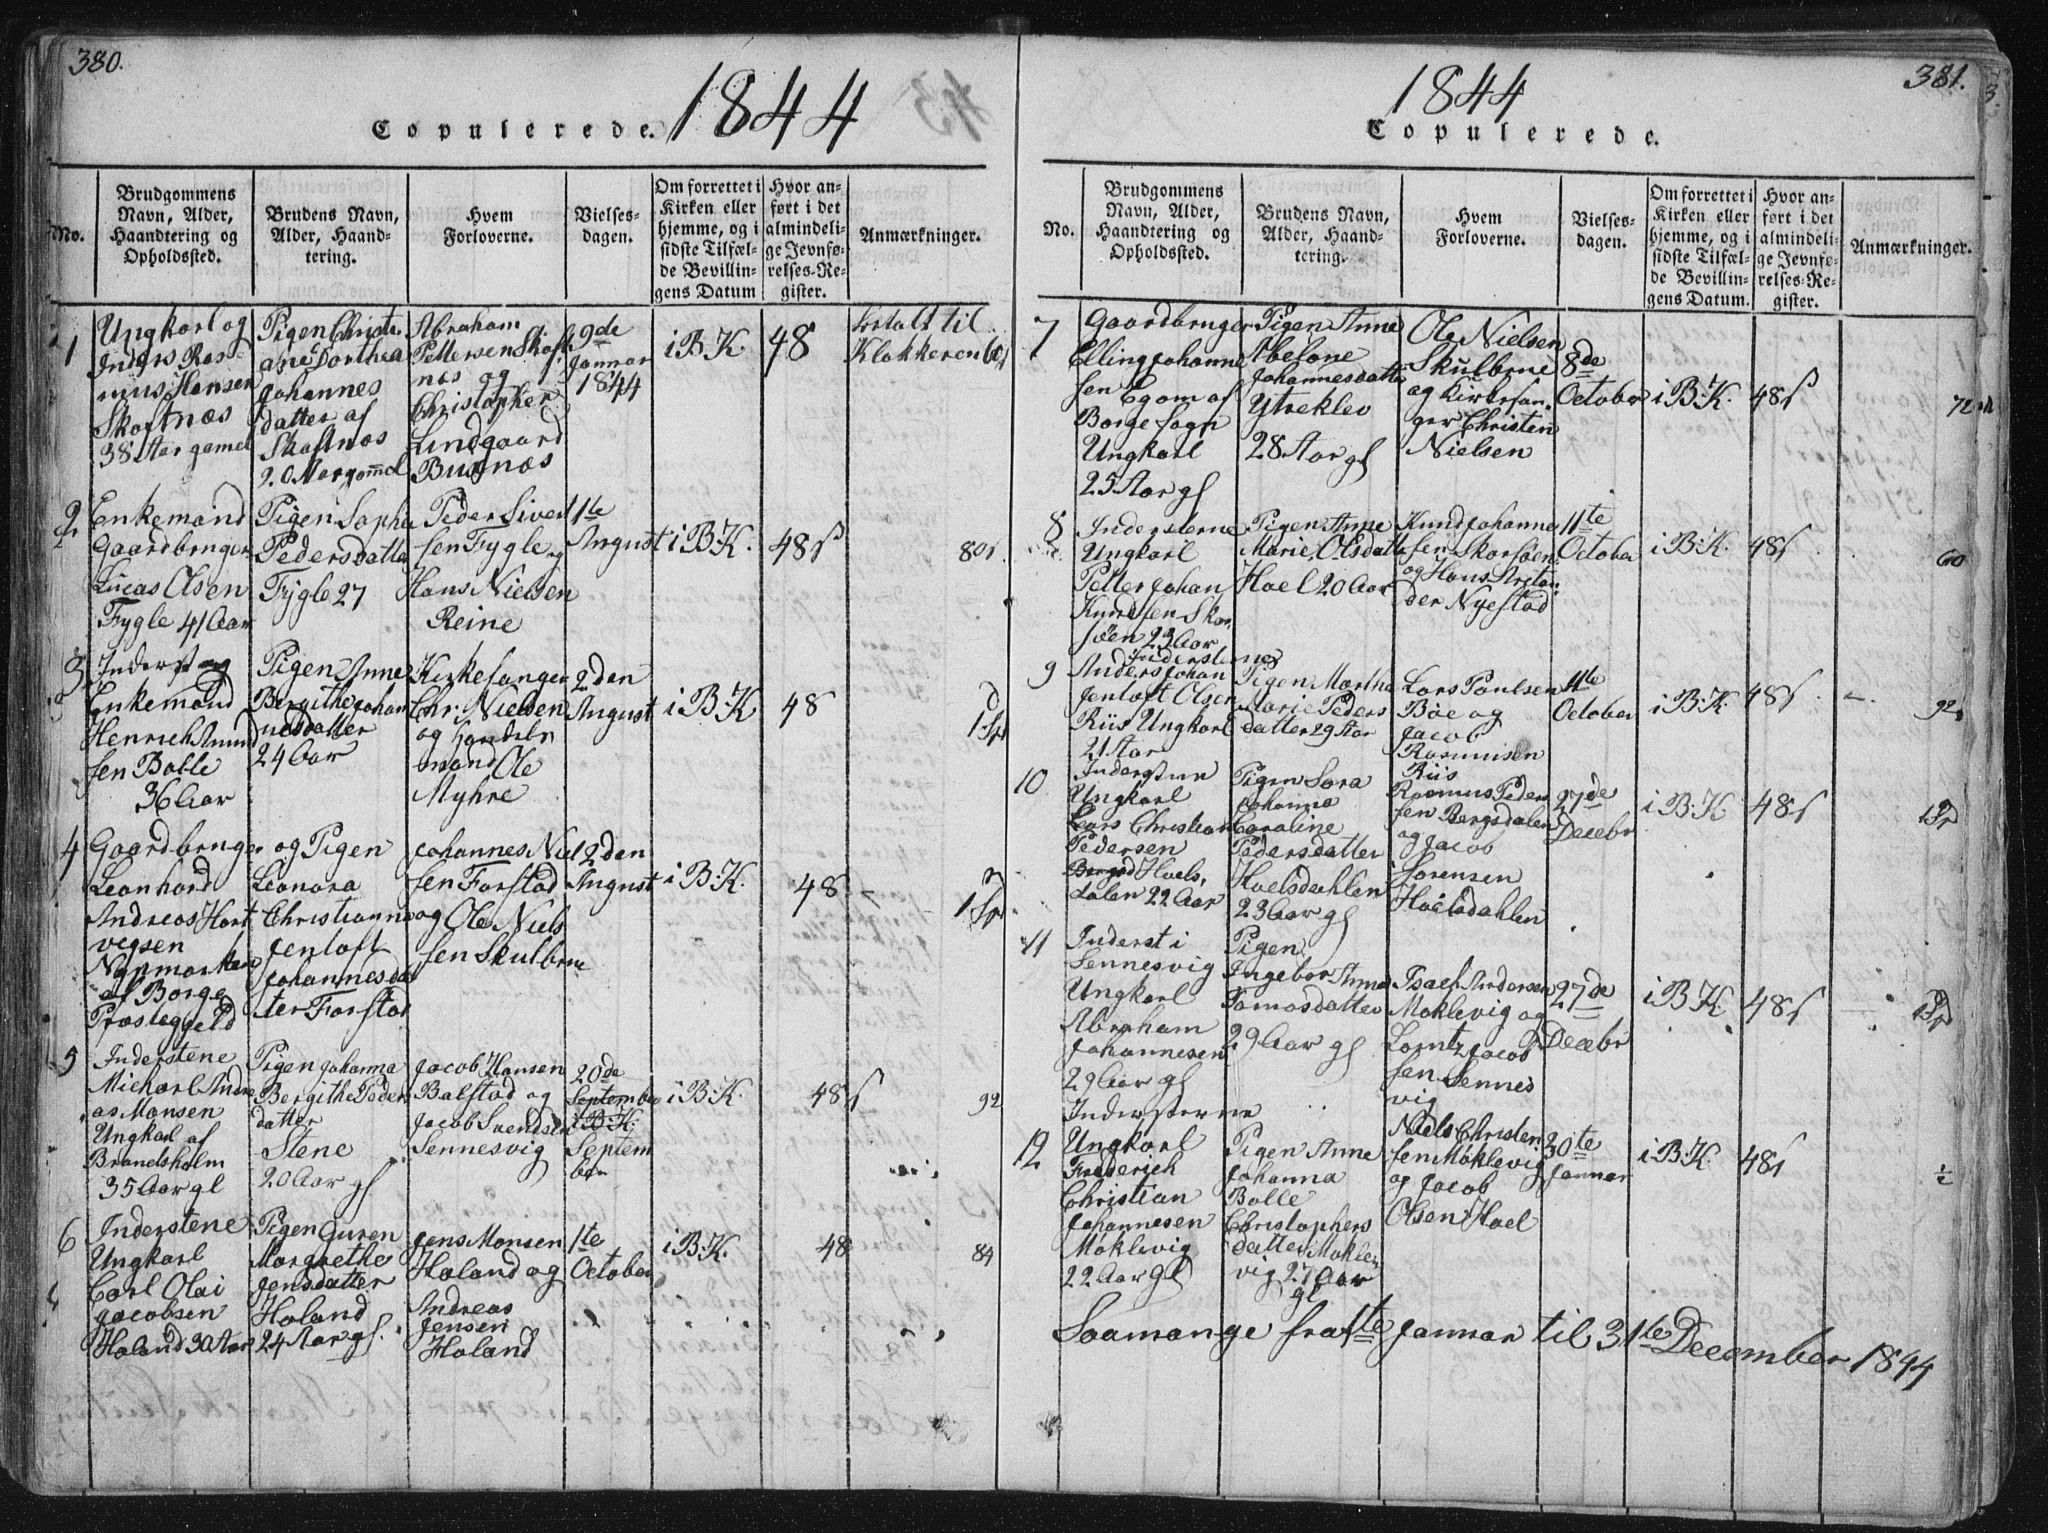 380.
1844
Copulerede.
No.
Brudgommens
Navn, Alder,
Haandtering og
Opholdssted.
Brudens Navn,
Alder, Haand-
tering.
Hvem
Forloverne.
Vielses-
dagen.
Om forrettet i
Kirken eller
hjemme, og i
sidste Tilfæl-
de Bevillin-
gens Datum
Hvor an-
ført i det
almindeli-
ge Jevnfø-
relses-Re-
gister.
Anmærkninger.
1
Ungkarl og
Inders Ras-
mus Hansen
Skaftnæs
38 Aar gamel
Pigen Christi
ane Dorthea
Johannes
datter af
Skaftnæs
20 Aar gaml
Abraham
Pettersen Skaft
næs og
Christopher
Lindgaard
Buxnæs
9de
Januar
1844
i B.K.
48
betalt til
Klokkeren 60
2
Enkemand
Gaardbruger
Lucas Olsen
Fygle 41 Aar
Pigen Sopha
Pedersdatter
Fygle 27
Peder Siver
sen Fygle og
Hans Nielsen
Reine
1te
August
i B.K.
48 s
80 s
3
Inderst og
Enkemand
Henrich Amund
sen Balle
36 Aar
Pigen Anne
Bergithe Johan
nesdatter
24 Aar
Kirkesanger
Chr. Nielsen
og Handels
mand Ole
Myhre
2den
August
i B.K.
48
1 Sp
4
Gaardbruger
Leonhard
Andreas Hart
vigsen
af Borge
Præsteggeld
og Pigen
Leonora
Christianna
Jentoft
Johannesdat
ter Farstad
Johannes Niel
sen Farstad
og Ole Niels
sen Skulbrue
2den
August
i B.K.
48
1 Sp
5
Inderstene
Michael Andre
as Monsen
Ungkarl af
Brandsholm
35 Aar gl
Pigen Johanna
Bergithe Peders
datter
Stene
20 Aar gl
Jacob Hansen
Balstad og
Jacob Svendsen
Sennesvig
20de
September
i B.K.
Septem
ber
i B.K.
48 s
92
6
Inderstene
Ungkarl
Carl Olai
Jacobsen
Haland 30 Aar
Pigen Guren
Margrethe
Jensdatter
Holand
24 Aar gl.
Jens Monsen
Holand og
Andreas
Jensen
Holand
1te
October
i B.K.
48
84
381.
1844
Copulerede.
No.
Brudgommens
Navn, Alder,
Haandtering og
Opholdssted.
Brudens Navn,
Alder, Haand-
tering.
Hvem
Forloverne.
Vielses-
dagen.
Om forrettet i
Kirken eller
hjemme, og i
sidste Tilfæl-
de Bevillin-
gens Datum.
Hvor an-
ført i det
almindeli-
ge Jevnfø-
relses-Re-
gister.
Anmærkninger.
7
Gaardbruger
Elling Johanne
sen Egom af
Borge Sogn
Ungkarl
25 Aar gl
Pigen Anne
Abelone
Johannesdatter
Ytreklev
28 Aar gl
Ole Nielsen
Skulbrue
og Kirkesan-
ger Christen
Nielsen
8de
October
i B.K.
48 s
72
8
Inderstene
Ungkarl
Petter Johan
Knudsen Skar
søen 23 Aar
Pigen Anne
Marie Olsdatter
Hael 20 Aar
Knud Johanne
sen Skarsøen
og Hans
Nyestad
11te
October
i B.K.
48 s
60
9
Inderstene
Anders Johan
Jentoft Olsen
Riis Ungkarl
21 Aar
Pigen Martha
Marie Peders
datter 29 Aar
Lars Paulsen
Bøe og
Jacob
Rasmusen
Riis
11te
October
i B.K.
48 s
92
10
Inderstun
Ungkarl
Lars Christian
Pedersen
Hoels,
dalen 22 Aar
Pigen Sara
Johanna
Caroline
Pedersdatter
Hoelsdahlen
23 Aar gl
Rasmus Peder
sen Bergsdalen
og Jacob
Sørensen
Hoelsdahlen
27de
Decebr
i B.K
48 s
1 Sp
11
Inderst i
Sennesvig
Ungkarl
Abraham
Johannesen
29 Aar gl
Pigen
Ingebor Anna
Tomasdatter
29 Aar gl
Isach Andersen
Moklevig og
Lorntz Jacob
sen Sennes
vig
27de
Decebr
i B.K
48 s
1 Sp
12
Inderstene
Ungkarl
Frederich
Christian
Johannesen
Moklevig
22 Aar gl
Pigen Anne
Johanna
Balle
Christophers
datter Mokle
vig 27 Aar
gl
Niels Christen
sen Moklevig
og Jacob
Olsen Hael
30te
Januar
i B.K.
48 s
½
Saamange fra 1te Januar til 31te December 1844